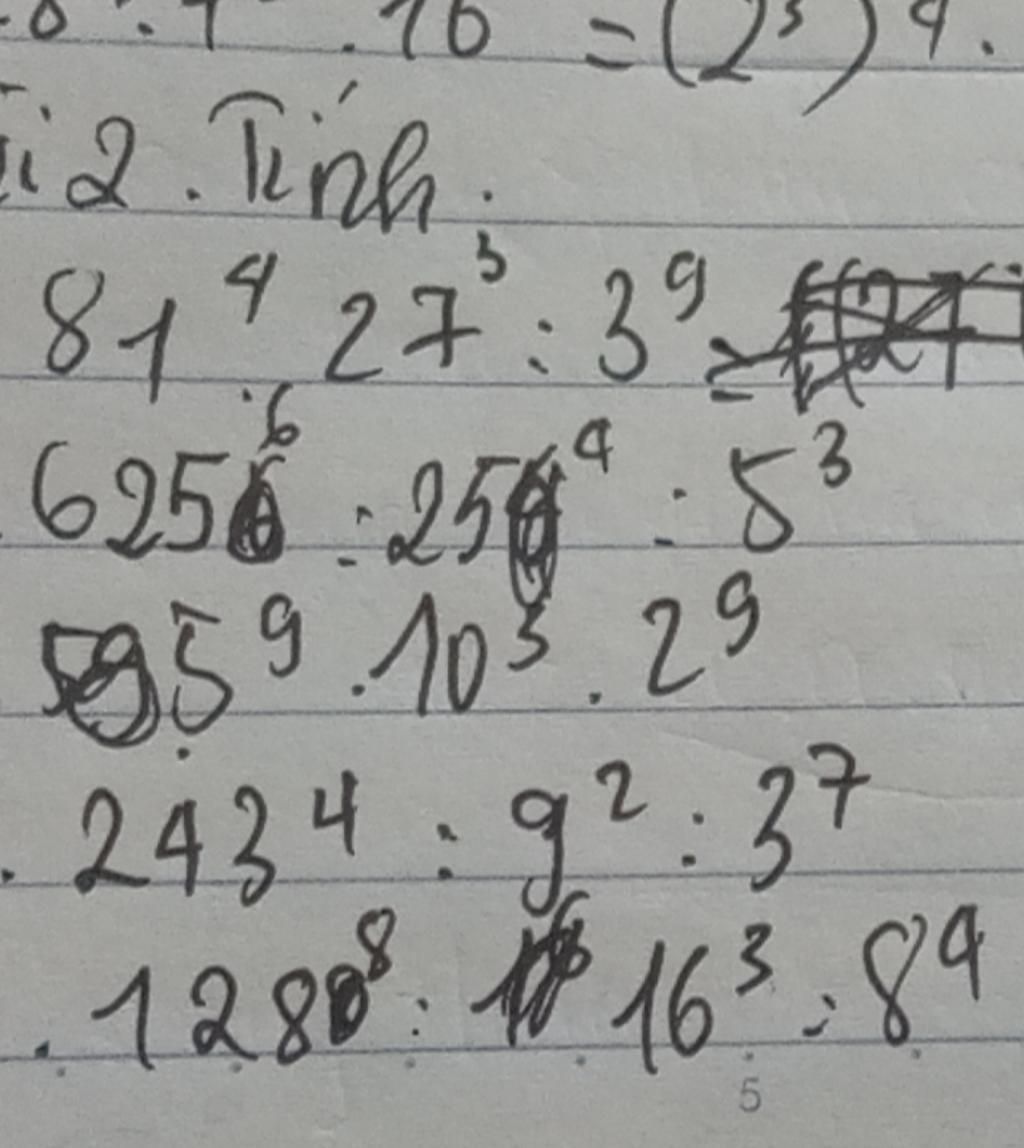 8 : 4 . 16 = (2³)⁴.
i 2. Tính.
81⁴ 27³ : 3⁹ =
625⁶ : 25⁴ : 5³
5⁹ . 10³ . 2⁹
. 243⁴ : 9² : 3⁷
. 128⁸ : 16³ : 8⁴
5